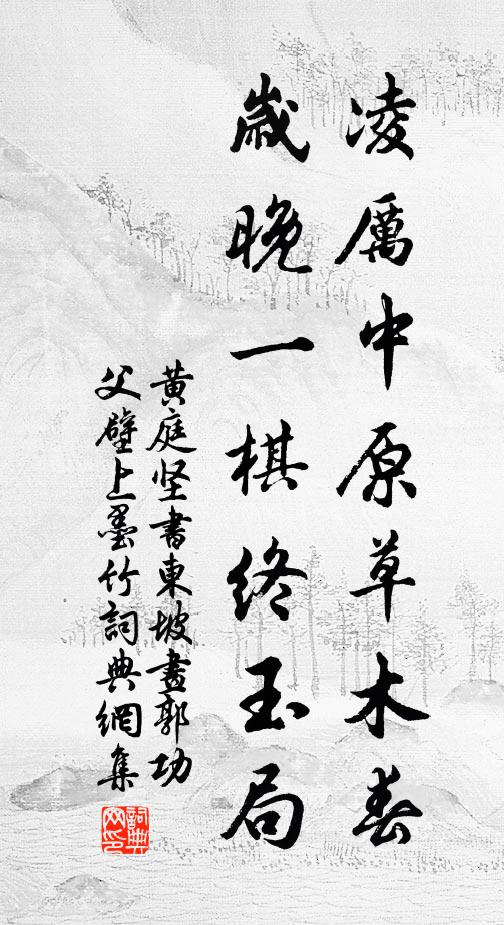 凌厲中原草木春
歲晚一棋終玉局
黃庭坚書東坡畫郭功
父壁上墨竹詞典網集
詞典网印